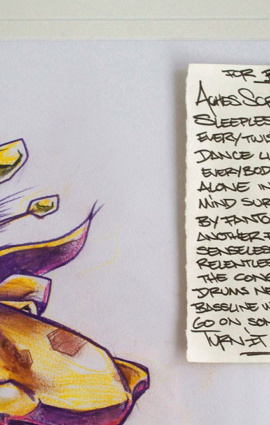 FOR
ACHES SO
SLEEPLES
EVERY TWI
DANCE L
EVERYBOD
ALONE IN
MIND SUR
BY FANTO
ANOTHER F
SENSELES
RELENTLES
THE CON
DRUMS NE
BASSLINE W
GO ON SON
TURN IT